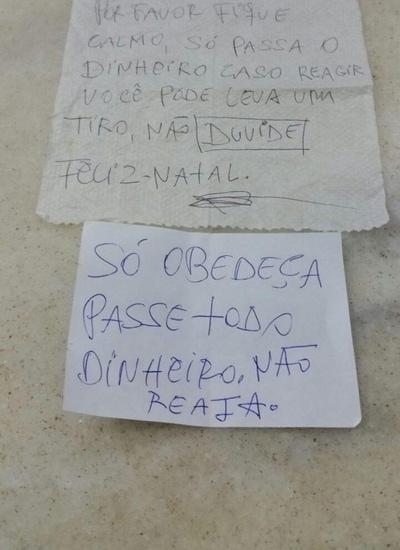 POR FAVOR FIQUE
CALMO, SÓ PASSA O
DINHEIRO CASO REAGIR
VOCÊ PODE LEVA UM
TIRO, NÃO DUVIDE
FELIZ-NATAL.
SÓ OBEDEÇA
PASSE TODO
DINHEIRO. NÃO
REAJA.